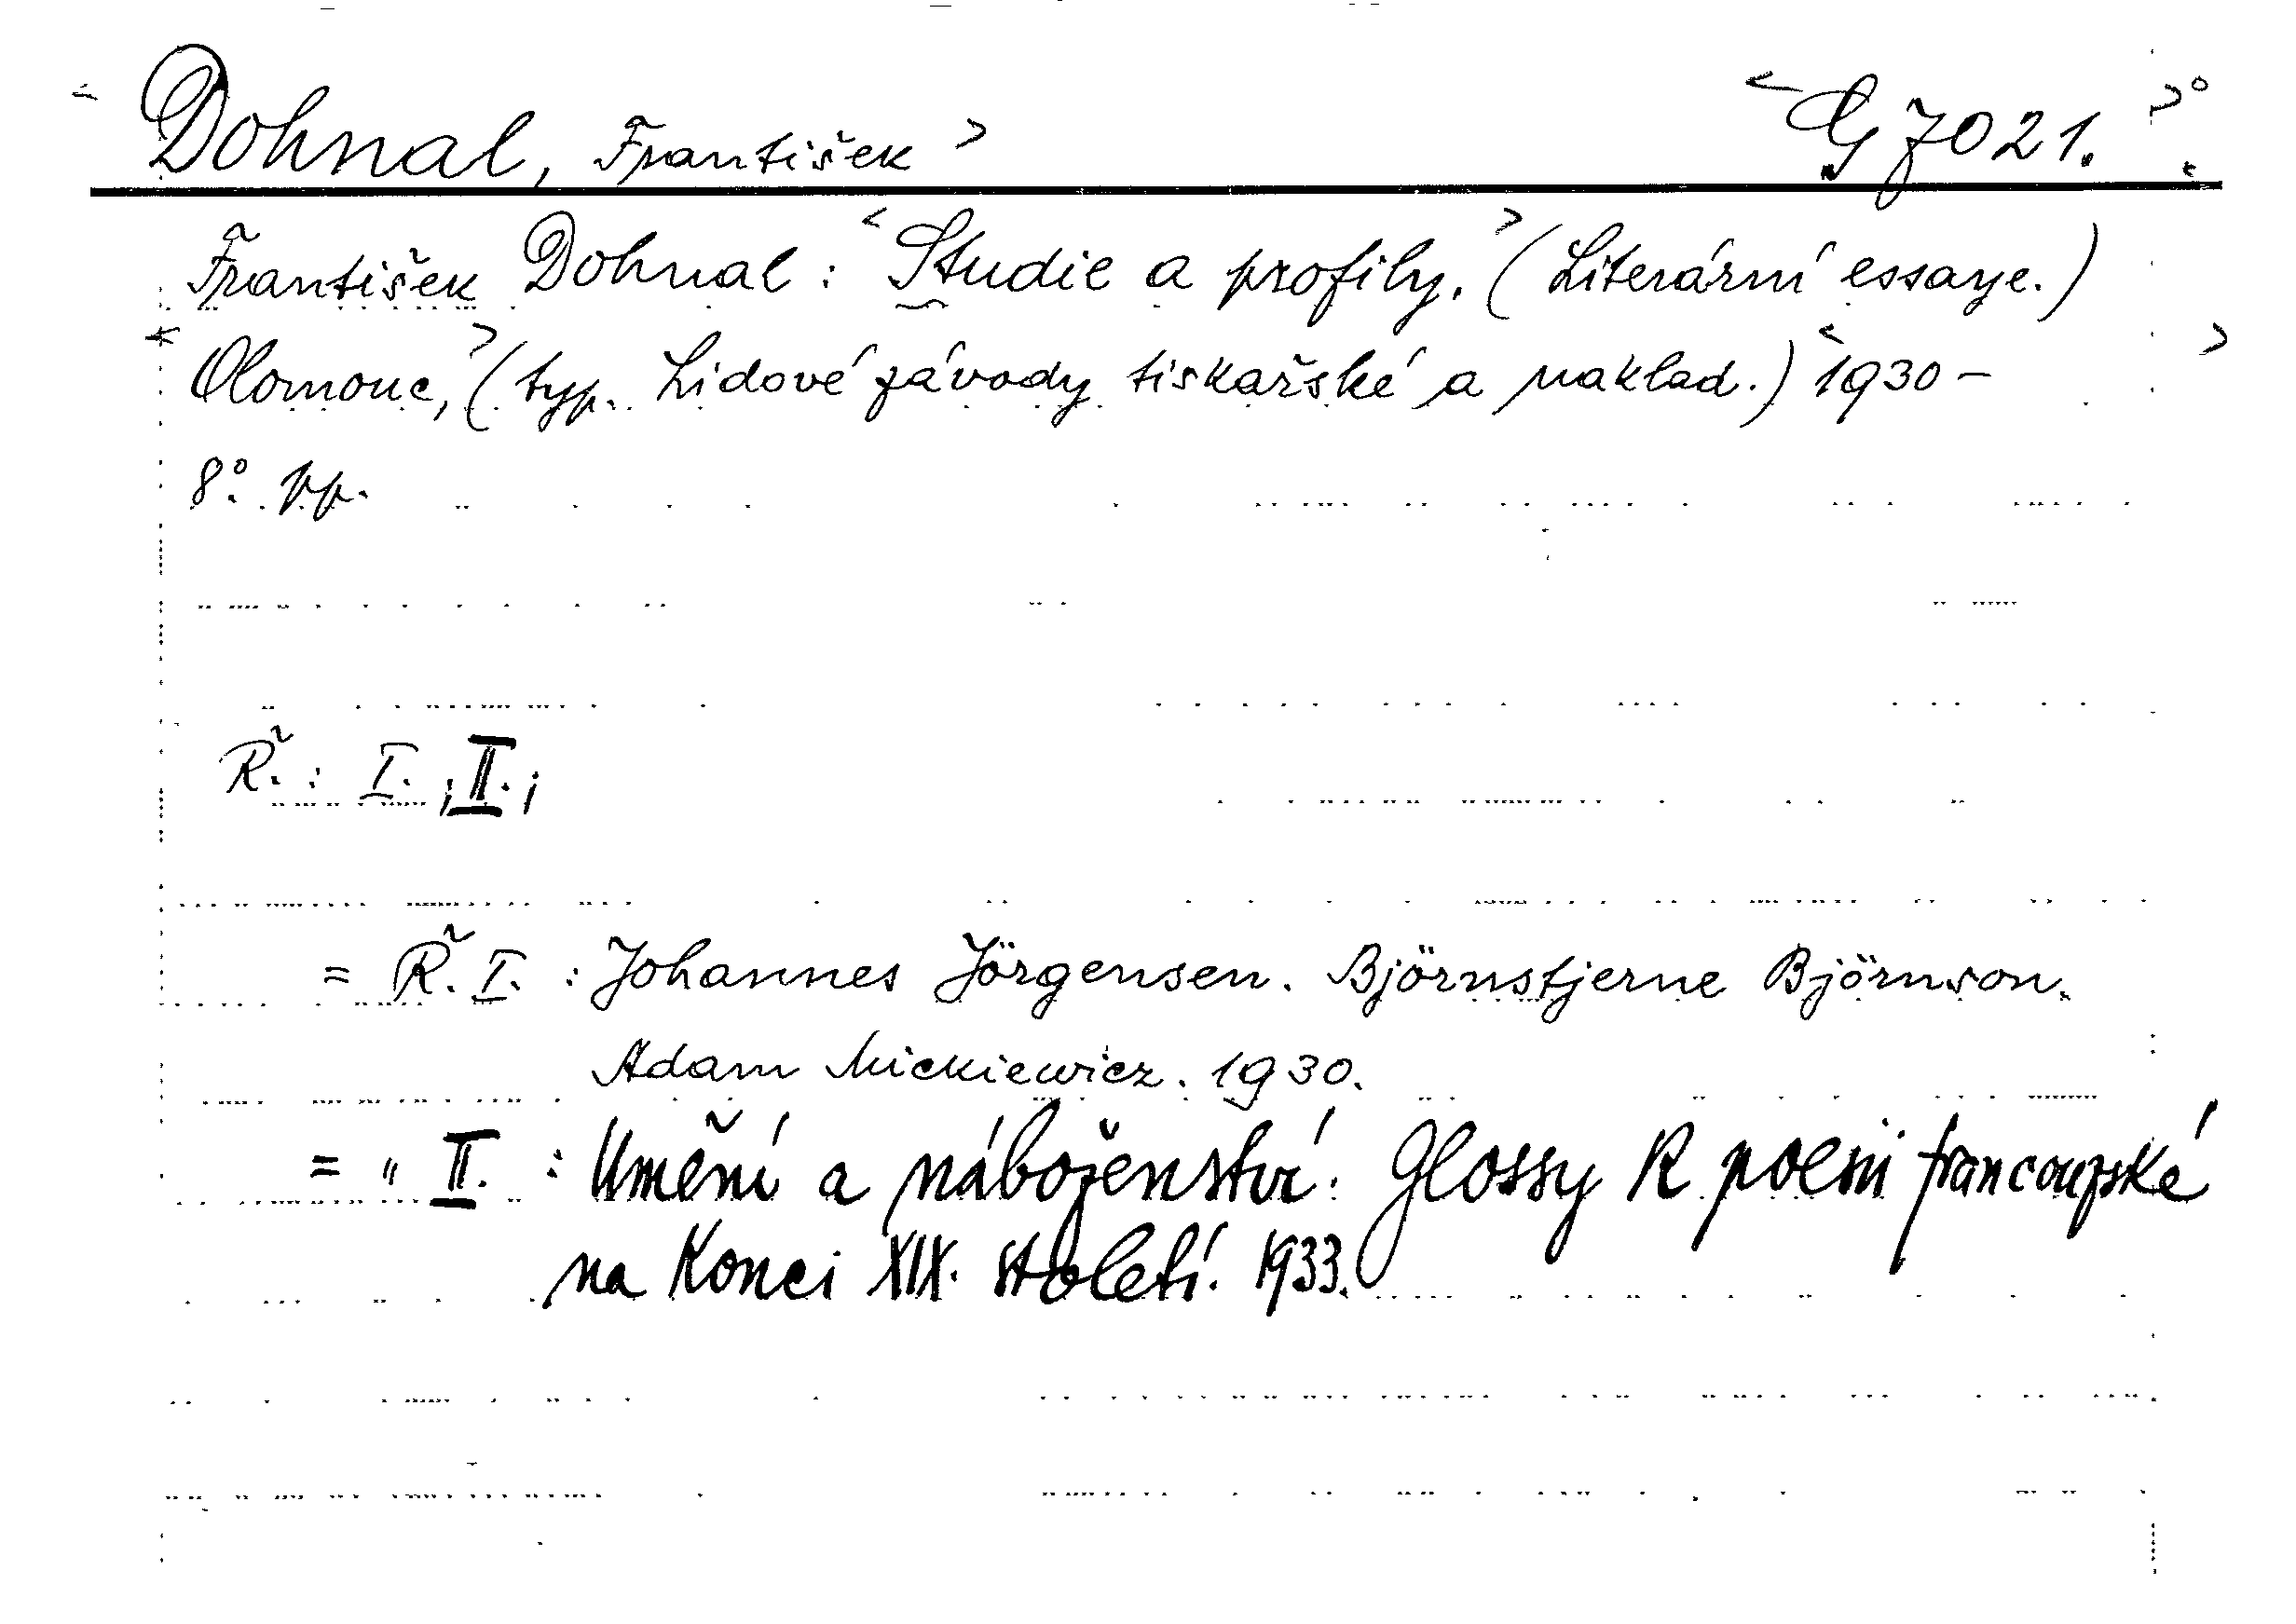 < Dohnal, František > < G 7021. >°
František Dohnal : < Studie a profily. > (Literární essaye.)
< Olomouc, > (typ. Lidové závody tiskařské a naklad.) < 1930 – >
8°. pp.
Ř. : I. ; II. ;
= Ř. I. : Johannes Jörgensen. Björnstjerne Björnson.
Adam Mickiewicz. 1930.
= " II. : Umění a náboženství. Glossy k poesii francouzské
na konci XIX. století. 1933.